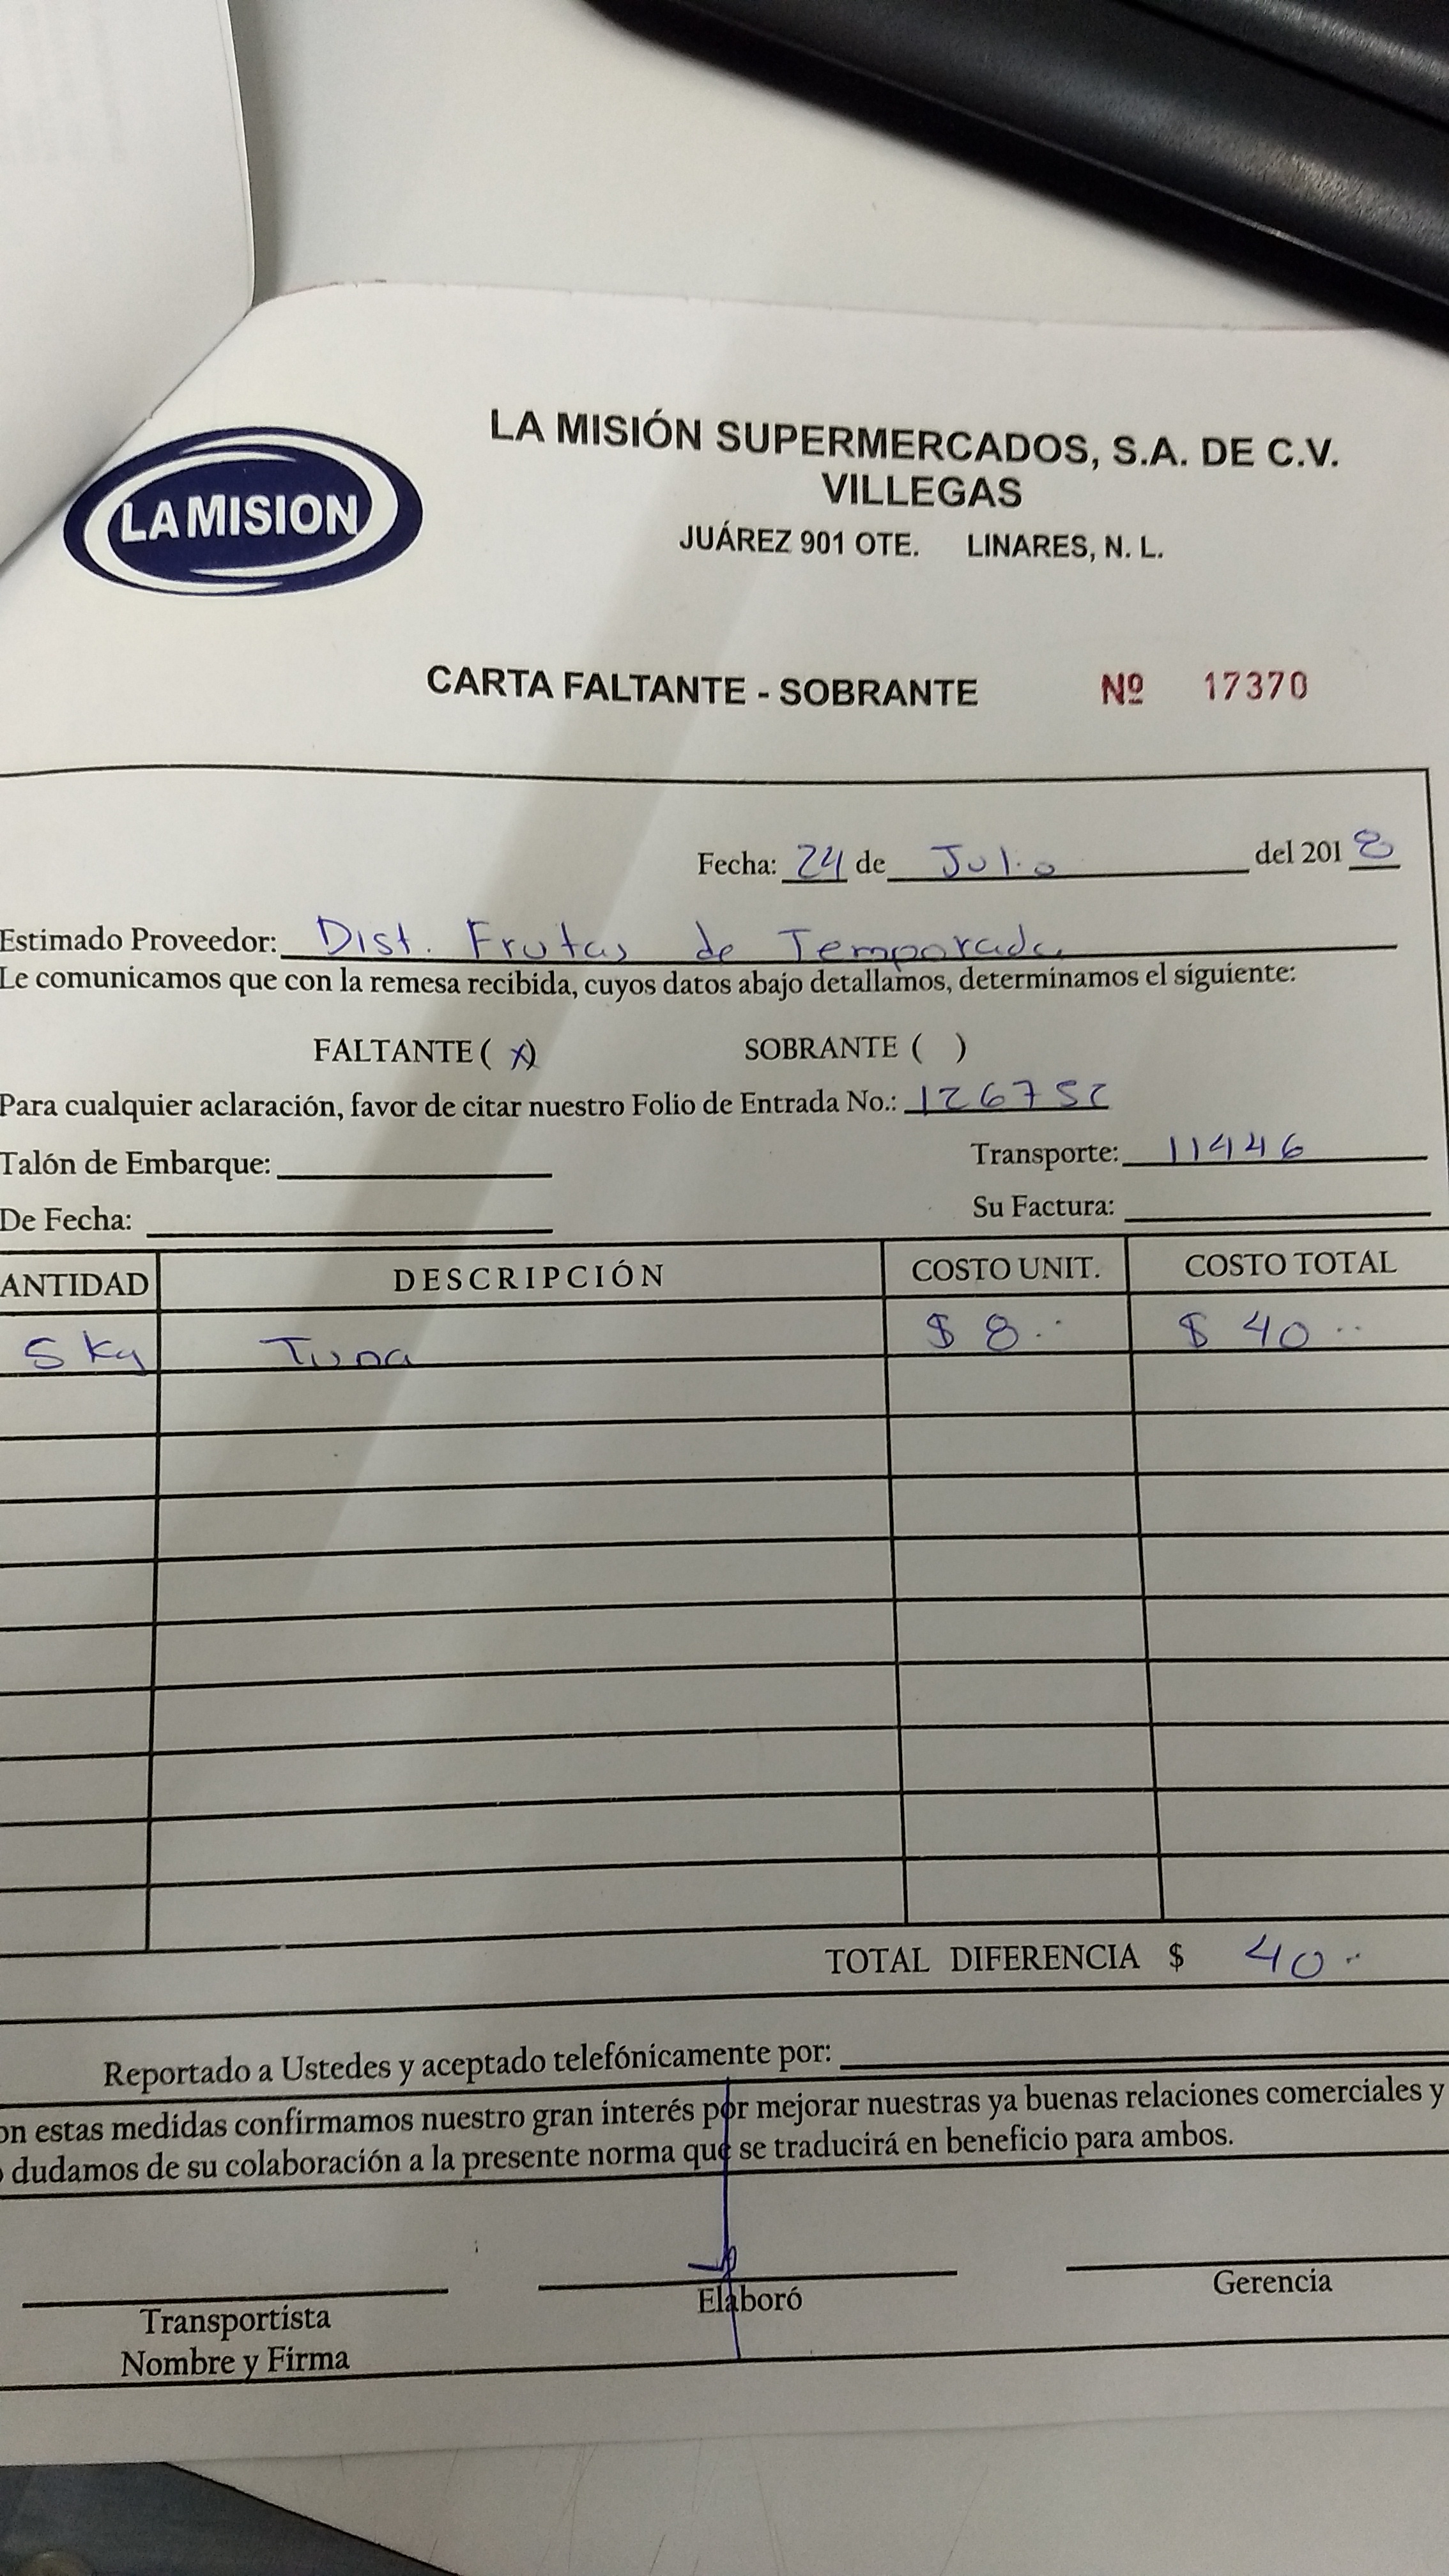 LA MISIÓN SUPERMERCADOS, S.A. DE C.V.
VILLEGAS
LA MISION
JUÁREZ 901 OTE. LINARES, N. L.
CARTA FALTANTE - SOBRANTE Nº 17370
Fecha: 24 de Julio del 2018
Estimado Proveedor: Dist. Frutas de Temporada
Le comunicamos que con la remesa recibida, cuyos datos abajo detallamos, determinamos el siguiente:
FALTANTE ( x ) SOBRANTE ( )
Para cualquier aclaración, favor de citar nuestro Folio de Entrada No.: 126752
Talón de Embarque: Transporte: 11446
De Fecha: Su Factura:
ANTIDAD DESCRIPCIÓN COSTO UNIT. COSTO TOTAL
5 Kg Tuna $ 8.·· $ 40 ··
TOTAL DIFERENCIA $ 40 ··
Reportado a Ustedes y aceptado telefónicamente por:
on estas medidas confirmamos nuestro gran interés por mejorar nuestras ya buenas relaciones comerciales y
o dudamos de su colaboración a la presente norma que se traducirá en beneficio para ambos.
Transportista Elaboró Gerencia
Nombre y Firma